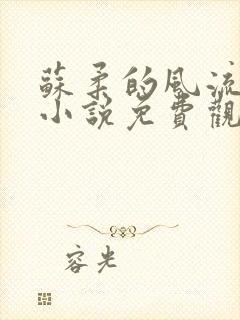 蘇柔的風流
小說免費觀
容光